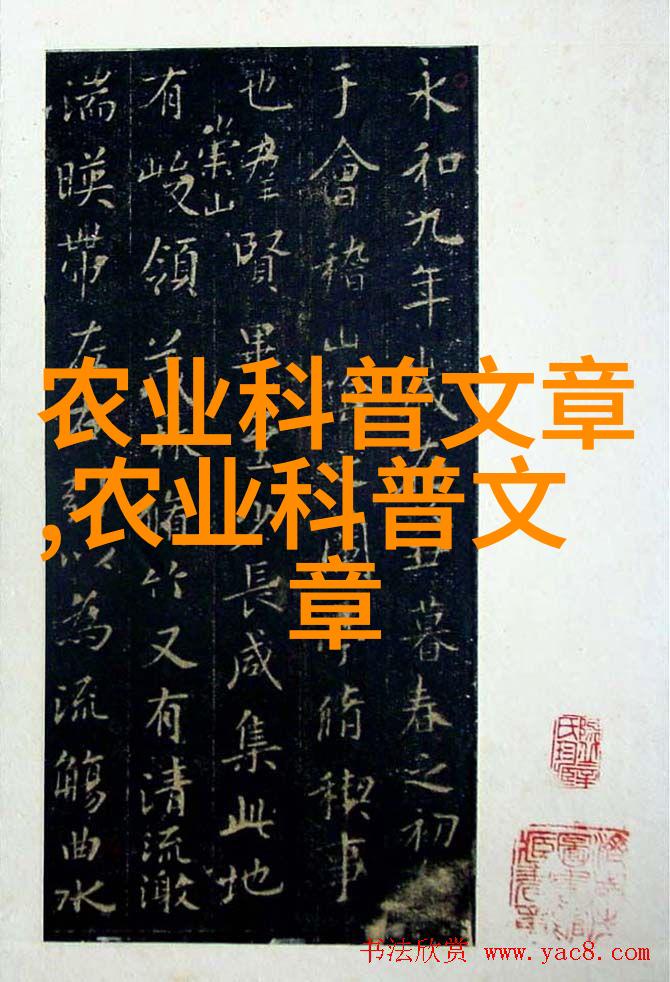 永和九年歲在丑暮春之初
于會稽山陰蘭亭脩稧事
也羣賢畢至少長咸集此地
有崇山峻領茂林脩竹又有清流激
湍暎帶左以為流觴曲水
农业科普文章
,农业科普文
章
书法欣赏 www.yac8.com